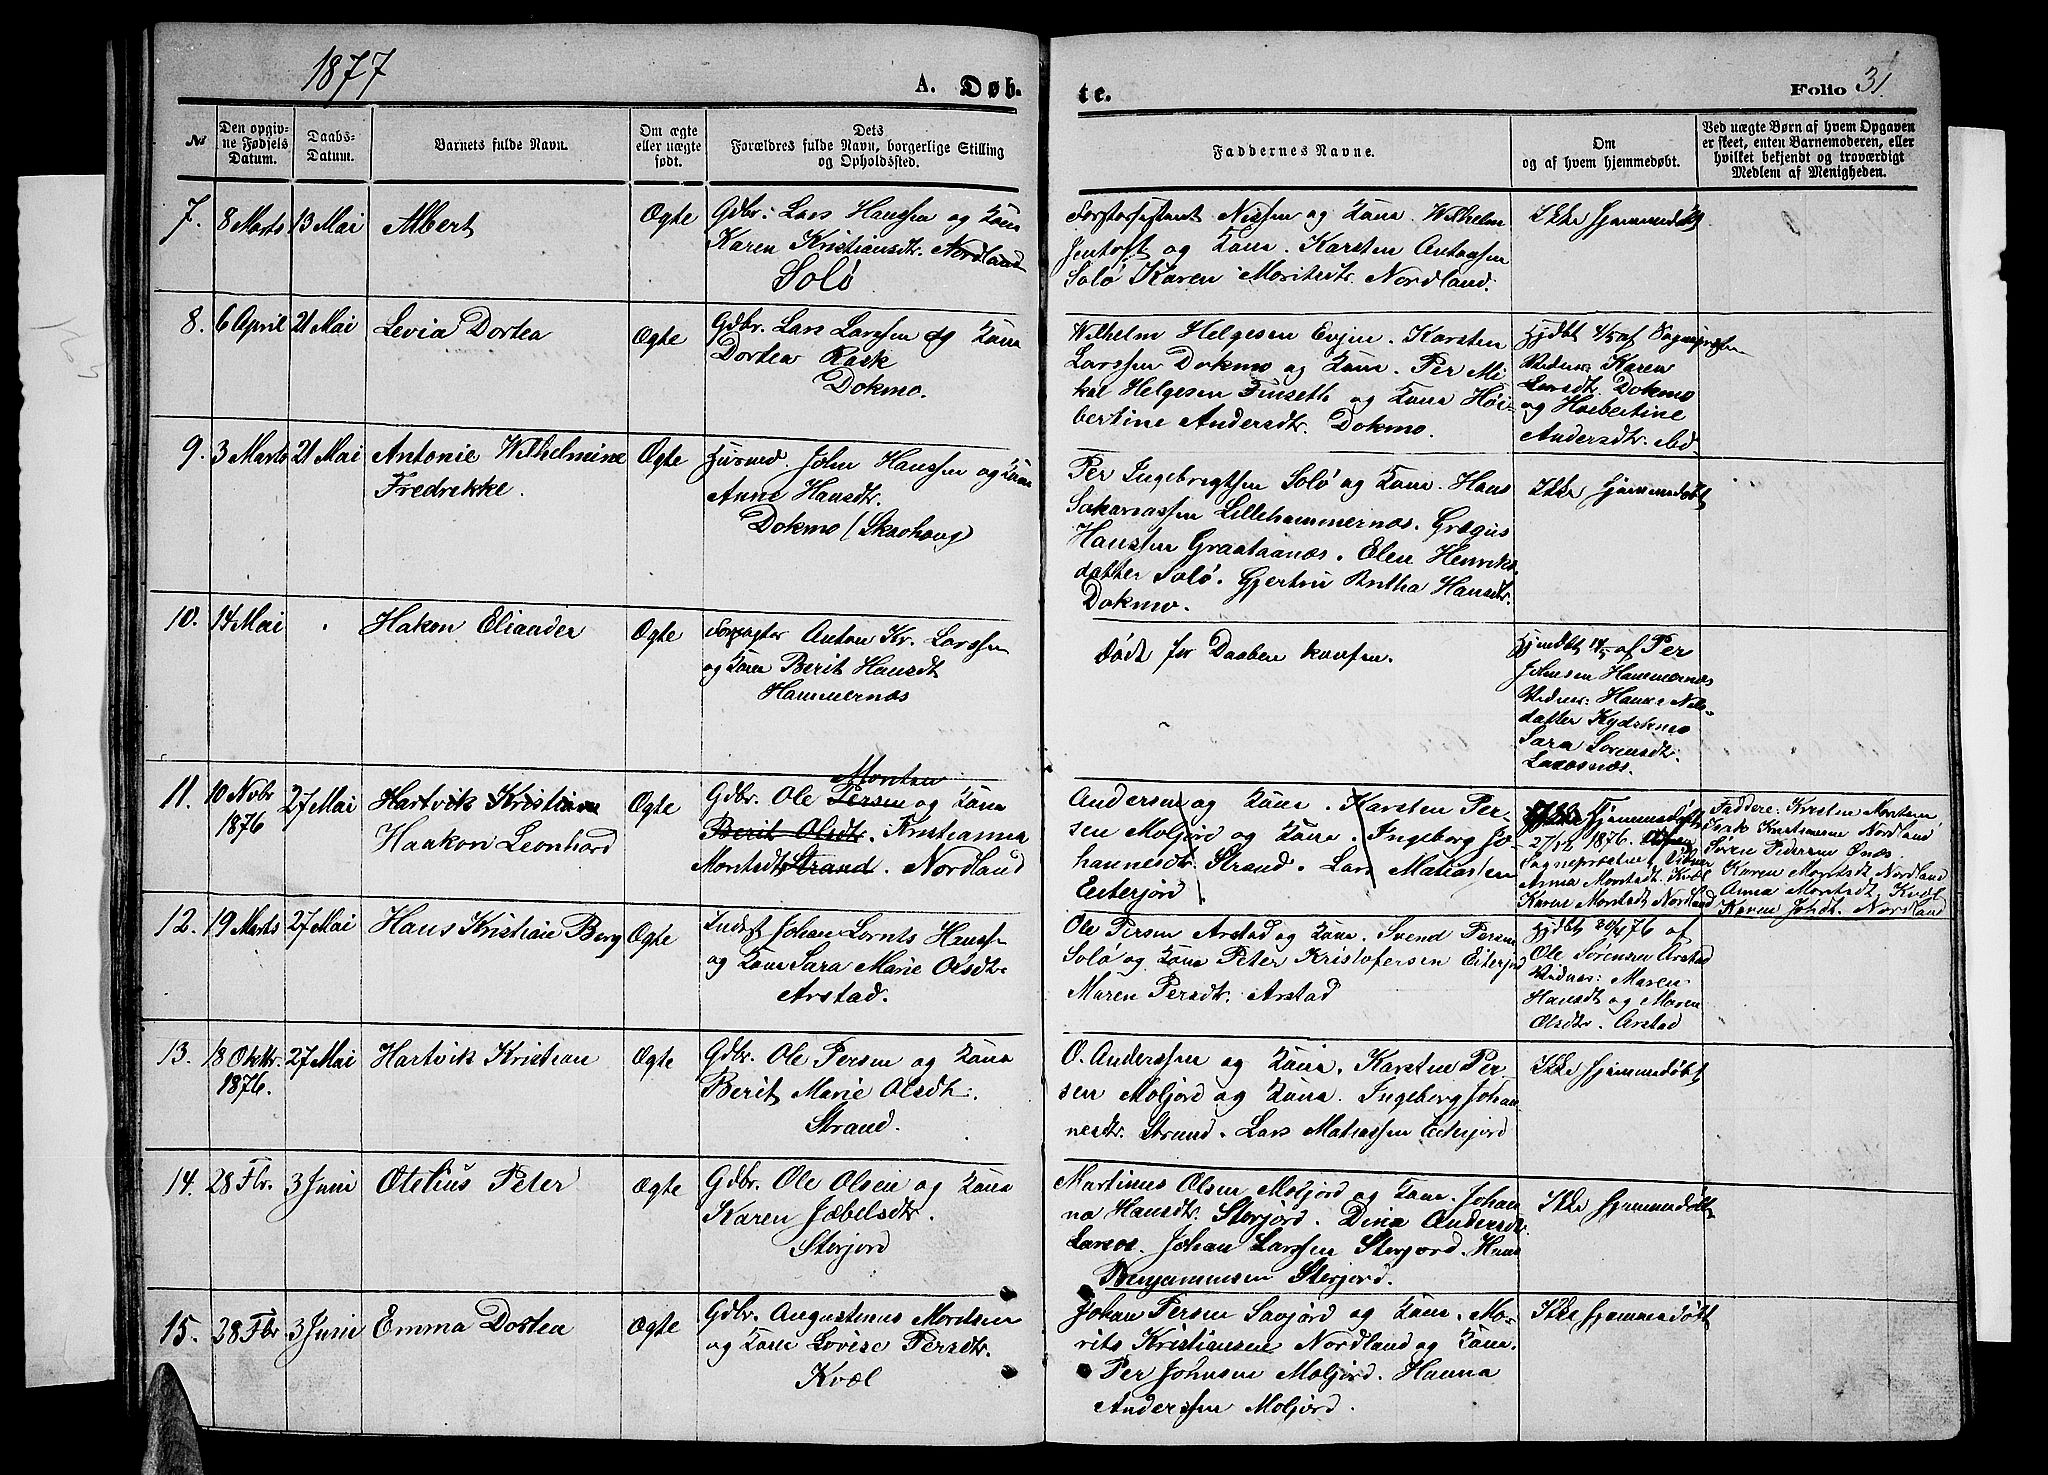 1877
A. Døb-
te.
Folio 31.
No
Den opgiv-
ne Fødsels
Datum.
Daabs-
Datum.
Barnets fulde Navn.
Om ægte
eller uægte
født.
Dets
Forældres fulde Navn, borgerlige Stilling
og Opholdssted.
Faddernes Navne.
Om
og af hvem hjemmedøbt.
Ved uægte Børn af hvem Opgaven
er skeet, enten Barnemoderen, eller
hvilket bekjendt og troværdigt
Medlem af Menigheden.
7.
8 Marts
13 Mai
Albert
Ægte
Gdbr. Lars Hanssen og Kone
Karen Kristiansdtr. Nordland
Solø
Forstassistent Nissen og Kone. Wilhelm
Jentoft og Kone. Karsten Antonsen
Solø Karen Moritsdtr. Nordland.
Ikke hjemmedøbt
8.
6 April
21 Mai
Levia Dortea
Ægte
Gdbr. Lars Larssen og Kone
Dortea Rask
Dokmo.
Wilhelm Helgesen Evjen. Karsten
Larssen Dokmo og Kone. Per Mi-
kal Helgesen Finseth og Kone Høi-
bertine Andersdtr. Dokmo.
Hjdbt 4/5 af Sognepresten
Vidner: Karen
Larsdt. Dokmo
og Høibertine
Andersdtr. ibd.
9.
3 Marts
21 Mai
Antonie Wilhelmine
Fredrekke.
Ægte
Husmd. John Hanssen og Kone
Anne Hansdtr.
Dokmo (Skaohaug)
Per Ingebrigtsen Solø og Kone. Hans
Sakariassen Lillehammernæs. Grægus
Hanssen Graataanæs. Elen Henriks-
datter Solø. Gjertru Britha Hansdtr.
Dokmo.
Ikke hjemmedøbt
10.
14 Mai
Hakon Eliander
Ægte
Forpagter Anton Kr. Larssen
og Kone Berit Hansdt
Hammernæs
død før Daaben kanfsm.
Hjmdbt 14/5 af Per
Johnsen Hammernæs
Vidner: Hanna Nils-
datter
Sara Sørensdtr.
11.
10 Novbr
1876
27 Mai
Hartvik Kristian
Haakon Leonhard
Ægte
Morten
Gdbr. Ole Persen og Kone
Berit Olsdtr. Kristianna
Moritsdt Strand. Nordland
Andersen og Kone. Karsten Per-
sen Moljord og Kone. Ingeborg Jo-
hannesdtr Strand. Lars Matiassen
Eiterjord
Ikke Hjemmedøbt
27/12 1876. Af
Sognepræsten Vidner
Anna Moritsdt. Kvæl
Karen Moritsdt. Nordland
Faddere: Kristen Mortsen
Isak Kristiansen Nordland
Søren Pedersen Ønæs.
Karen Moritsdt Nordland
Anna Moritsdt. Kvæl
Karen Johdt. Nordland
12.
19 Marts
27 Mai
Hans Kristian Berg
Ægte
Inderst Johan Lornts Hanssen
og Kone Sara Marie Olsdtr.
Arstad.
Ole Persen Arstad og Kone. Svend Persen
Solø og Kone Peter Kristofersen Eiterjord
Maren Persdtr. Arstad
Hjdbt 20/4 76 af
Ole Sørensen Arstad
Vidner: Maren
Hansdt og Maren
Olsdtr. Arstad
13.
18 Oktbr.
1876.
27 Mai
Hartvik Kristian
Ægte
Gdbr. Ole Persen og Kone
Berit Marie Olsdtr.
Strand.
O. Anderssen og Kone. Karsten Per-
sen Moljord og Kone. Ingeborg Johan-
nesdtr. Strand. Lars Matiassen Eiterjord
Ikke Hjemmedøbt
14.
28 Fbr.
3 Juni
Otelius Peter
Ægte
Gdbr. Ole Olsen og Kone
Karen Jæbelsdtr.
Storjord
Martinus Olsen Moljord og Kone. Johan-
na Hansdtr. Storjord. Dina Andersdt.
Larsos. Johan Larssen Storjord. Hans
Benjaminsen Storjord.
Ikke hjemmedøbt
15.
28 Fbr
3 Juni
Emma Dortea
Ægte
Gdbr. Augustinus Moritsen
og Kone Lovise Persdtr.
Kvæl
Johan Persen Savjord og Kone. Mo-
rits Kristiansen Nordland og Kone.
Per Johnsen Moljord. Hanna
Anderssen Moljord.
Ikke hjemmedøbt